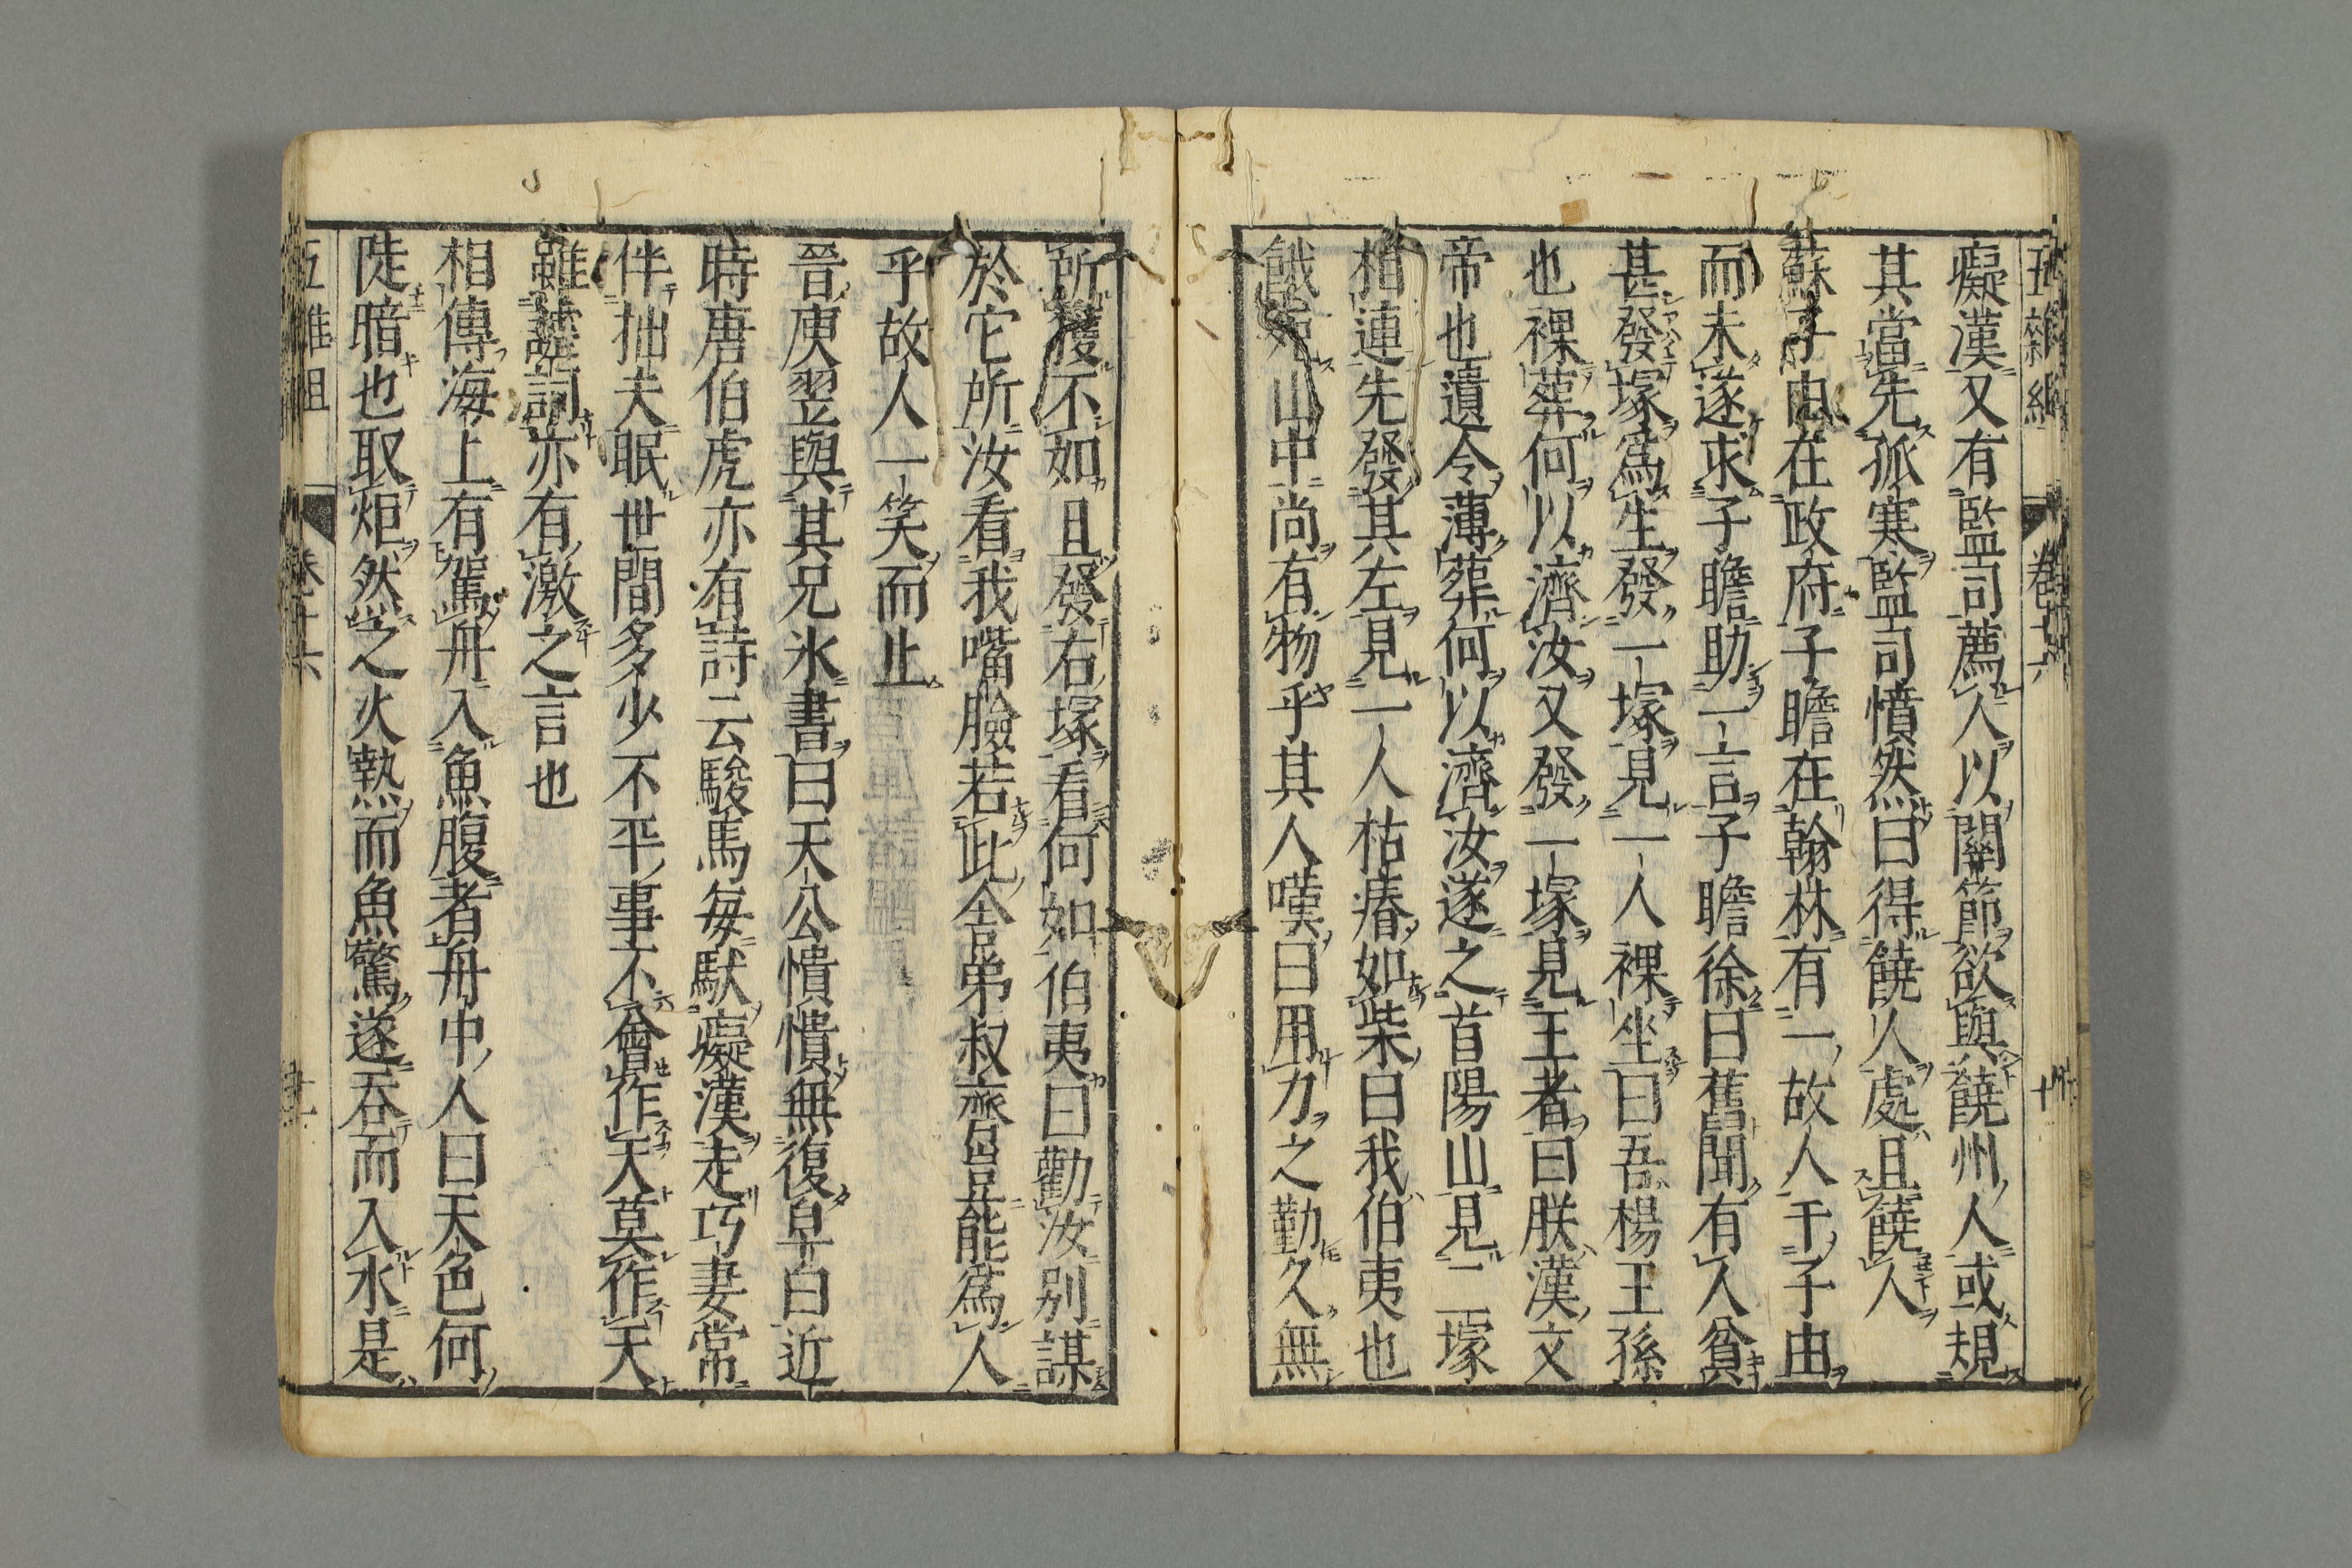 五雜組 卷十六 十
癡漢又有監司薦人以關節欲與饒州人或規
其當先孤寒監司憤然曰得饒人處且饒人
蘇子由在政府子瞻在翰林有一故人干子由
而未遂求子瞻助一言子瞻徐曰舊聞有人貧
甚發塚爲生發一塚見一人裸坐曰吾楊王孫
也裸葬何以濟汝又發一塚見王者曰朕漢文
帝也遺令薄葬何以濟汝遂之首陽山見二塚
相連先發其左見一人枯瘠如柴曰我伯夷也
餓死山中尚有物乎其人嘆曰用力之勤久無
所獲不如且發右塚看何如伯夷曰勸汝別謀
於它所汝看我嘴臉若此舍弟叔齊豈能爲人
乎故人一笑而止
晉庾翌與其兄氷書曰天公憒憒無復皁白近
時唐伯虎亦有詩云駿馬每馱癡漢走巧妻常
伴拙夫眠世間多少不平事不會作天莫作天
雖謔詞亦有激之言也
相傳海上有駕舟入魚腹者舟中人曰天色何
陡暗也取炬然之火熱而魚驚遂吞而入水是
五雜組 卷十六